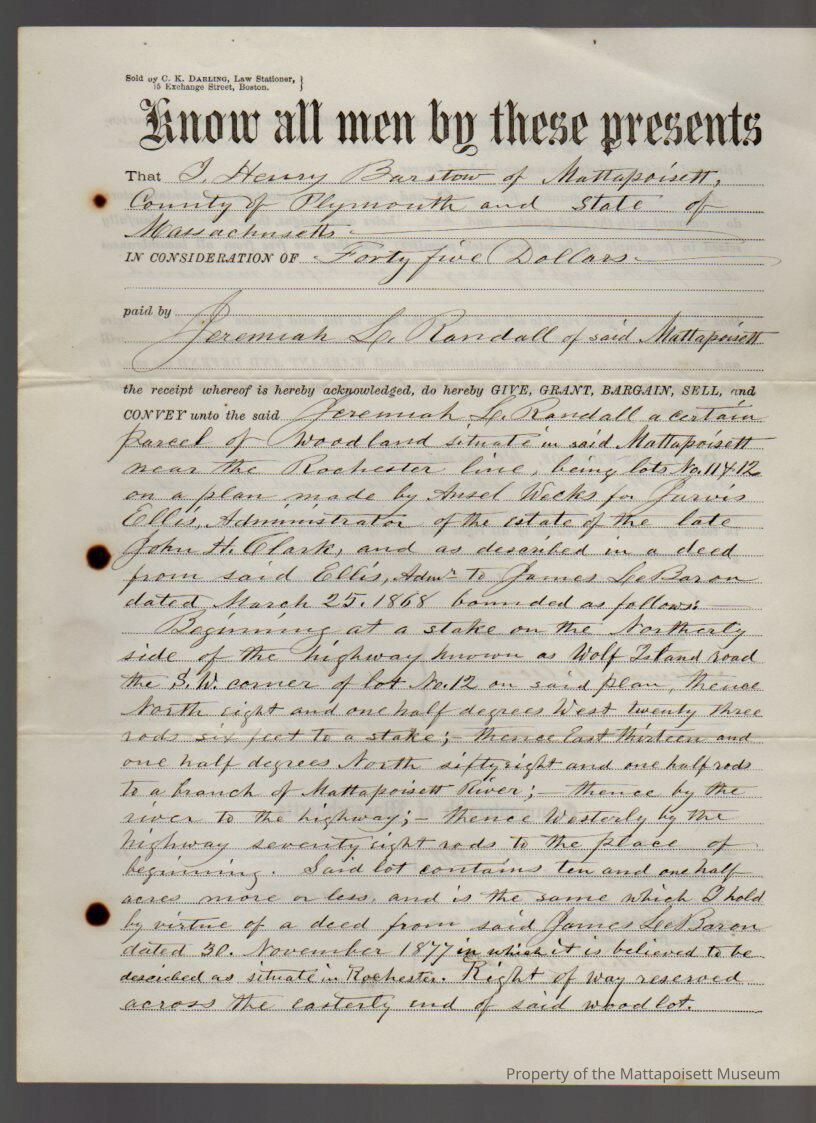 Sold by C. K. DARLING, Law Stationer, }
15 Exchange Street, Boston.
Know all men by these presents
That I, Henry Barstow of Mattapoisett,
County of Plymouth and State of
Massachusetts
IN CONSIDERATION OF Forty five Dollars
paid by
Jeremiah L. Randall of said Mattapoisett
the receipt whereof is hereby acknowledged, do hereby GIVE, GRANT, BARGAIN, SELL, and
CONVEY unto the said Jeremiah L. Randall a certain
parcel of woodland situate in said Mattapoisett
near the Rochester line, being lots No. 11 & 12
on a plan made by Ansel Weeks for Jarvis
Ellis, Administrator of the estate of the late
John H. Clark, and as described in a deed
from said Ellis, Admr to James LeBaron
dated March 25. 1868 bounded as follows:
Beginning at a stake on the Northerly
side of the highway known as Wolf Island road
the S.W. corner of lot No. 12 on said plan, thence
North eight and one half degrees West twenty three
rods six feet to a stake; - thence East thirteen and
one half degrees North sixty eight and one half rods
to a branch of Mattapoisett River; - thence by the
river to the highway; - thence Westerly by the
highway seventy eight rods to the place of
beginning. Said lot contains ten and one half
acres more or less, and is the same which I hold
by virtue of a deed from said James LeBaron
dated 30. November 1877 in which it is believed to be
described as situate in Rochester. Right of way reserved
across the easterly end of said wood lot.
Property of the Mattapoisett Museum